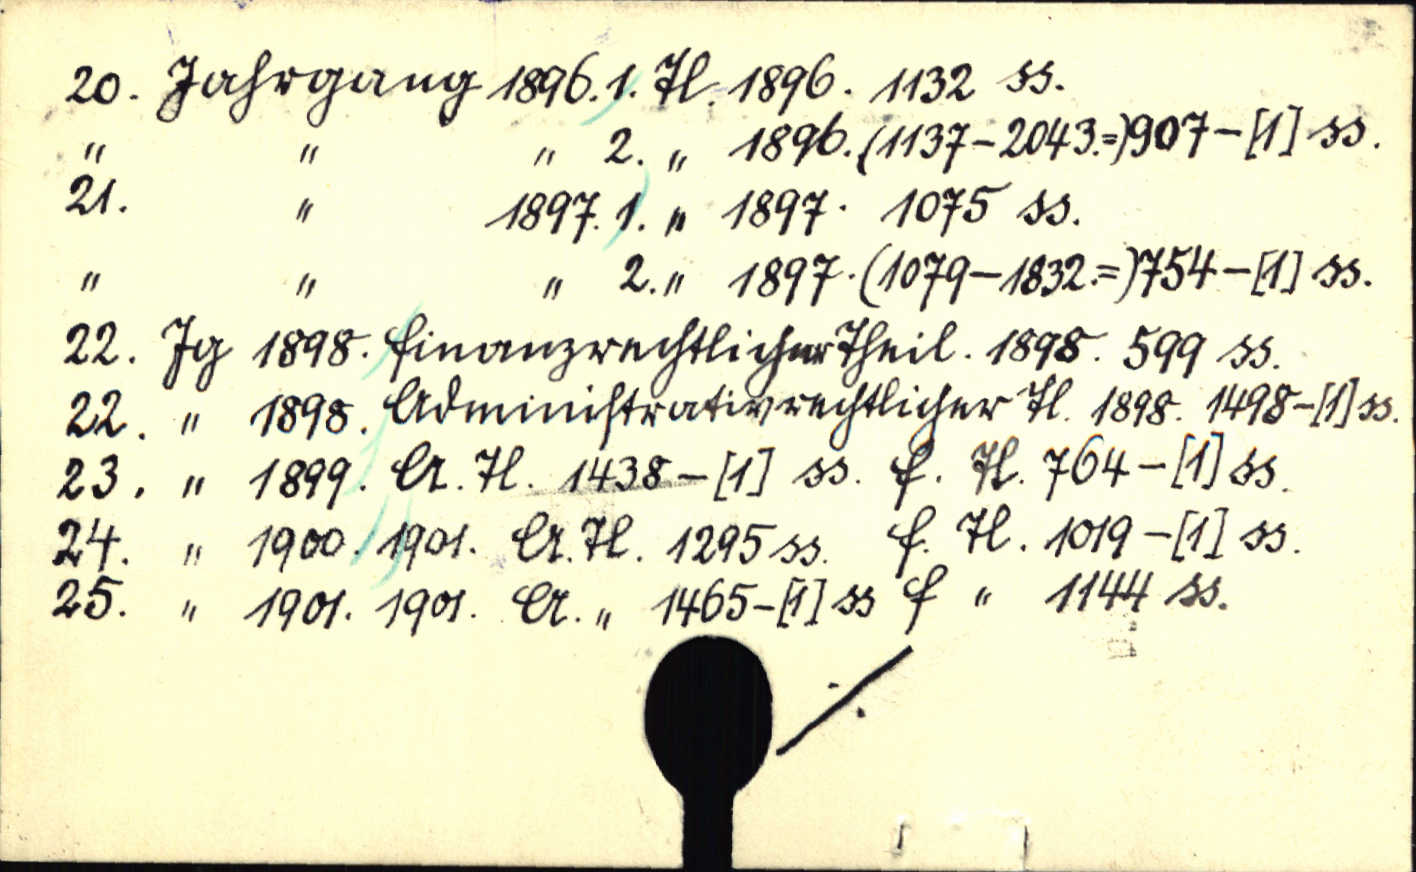 20. Jahrgang 1896. 1. Tl. 1896. 1132 ss.
" " " 2. " 1896. (1137-2043.=)907-[1] ss.
21. " 1897. 1. " 1897. 1075 ss.
" " " 2. " 1897. (1079-1832.=)754-[1] ss.
22. Jg 1898. Finanzrechtlicher Theil. 1898. 599 ss.
22. " 1898. Administrativrechtlicher Tl. 1898. 1498-[1] ss.
23. " 1899. A. Tl. 1438-[1] ss. F. Tl. 764-[1] ss.
24. " 1900. 1901. A. Tl. 1295 ss. F. Tl. 1019-[1] ss.
25. " 1901. 1901. A. " 1465-[1] ss F " 1144 ss.
./.